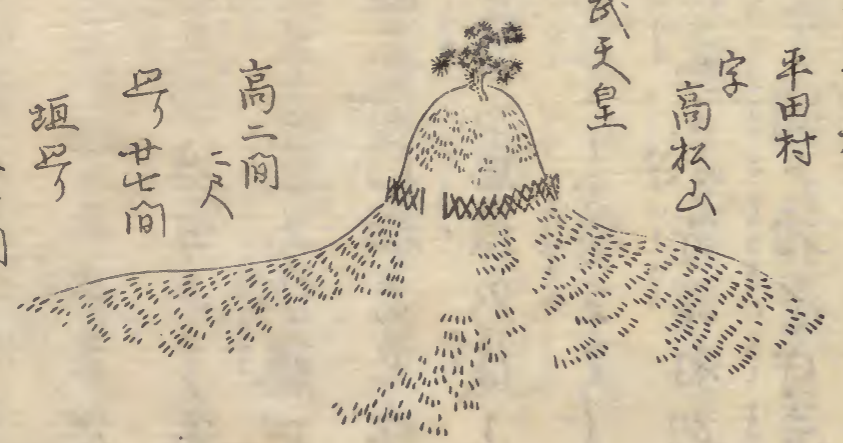 平田村
字
高松山
武天皇
高二間
二尺
廻り
廿七間
垣廻り